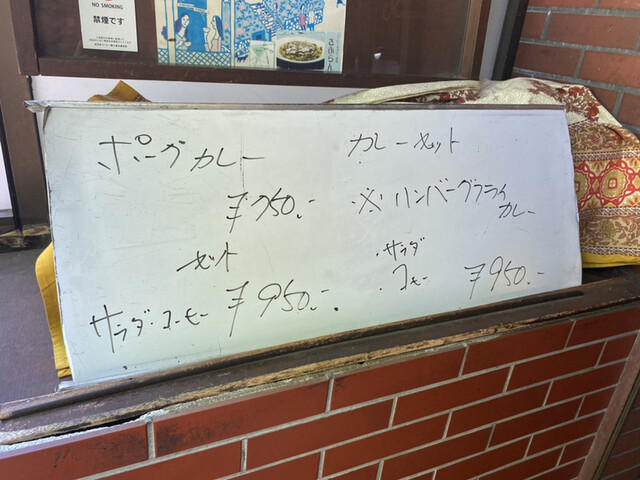 NO SMOKING
禁煙です
ポークカレー
￥750.-
セット
サラダ・コーヒー ￥950.-
カレーセット
※ハンバーグフライ
カレー
・サラダ
・コーヒー ￥950.-